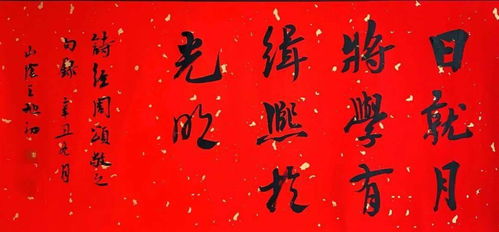 日就月
將學有
緝熙於
光明
詩經周頌敬之
句錄 辛丑
山陰